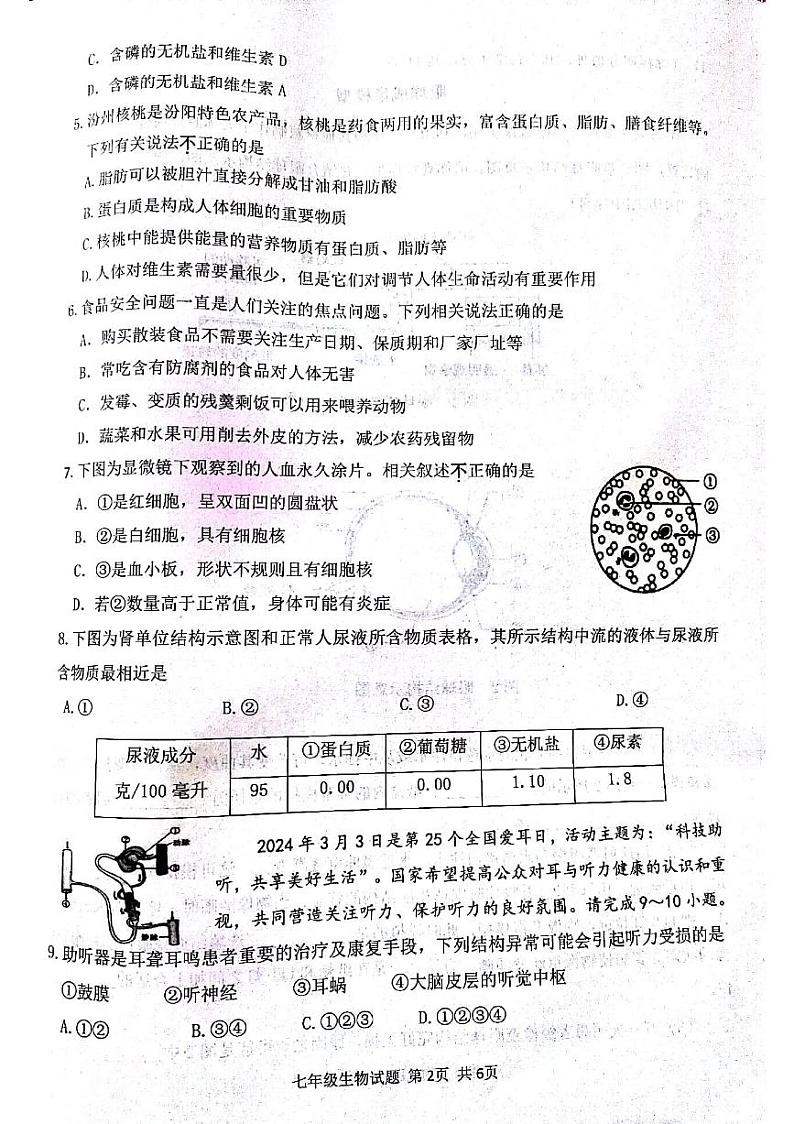 C. 含磷的无机盐和维生素 D
D. 含磷的无机盐和维生素 A
5.汾州核桃是汾阳特色农产品，核桃是药食两用的果实，富含蛋白质、脂肪、膳食纤维等。
下列有关说法不正确的是
A.脂肪可以被胆汁直接分解成甘油和脂肪酸
B.蛋白质是构成人体细胞的重要物质
C.核桃中能提供能量的营养物质有蛋白质、脂肪等
D.人体对维生素需要量很少，但是它们对调节人体生命活动有重要作用
6.食品安全问题一直是人们关注的焦点问题。下列相关说法正确的是
A. 购买散装食品不需要关注生产日期、保质期和厂家厂址等
B. 常吃含有防腐剂的食品对人体无害
C. 发霉、变质的残羹剩饭可以用来喂养动物
D. 蔬菜和水果可用削去外皮的方法，减少农药残留物
7.下图为显微镜下观察到的人血永久涂片。相关叙述不正确的是
A. ①是红细胞，呈双面凹的圆盘状
B. ②是白细胞，具有细胞核
C. ③是血小板，形状不规则且有细胞核
D. 若②数量高于正常值，身体可能有炎症
①
②
③
8.下图为肾单位结构示意图和正常人尿液所含物质表格，其所示结构中流的液体与尿液所
含物质最相近是
A.① B.② C.③ D.④
尿液成分 水 ①蛋白质 ②葡萄糖 ③无机盐 ④尿素
克/100 毫升 95 0.00 0.00 1.10 1.8
2024 年 3 月 3 日是第 25 个全国爱耳日，活动主题为：“科技助
听，共享美好生活”。国家希望提高公众对耳与听力健康的认识和重
视，共同营造关注听力、保护听力的良好氛围。请完成 9～10 小题。
9.助听器是耳聋耳鸣患者重要的治疗及康复手段，下列结构异常可能会引起听力受损的是
①鼓膜 ②听神经 ③耳蜗 ④大脑皮层的听觉中枢
A.①② B.③④ C.①②③ D.①②③④
七年级生物试题 第 2页 共 6页